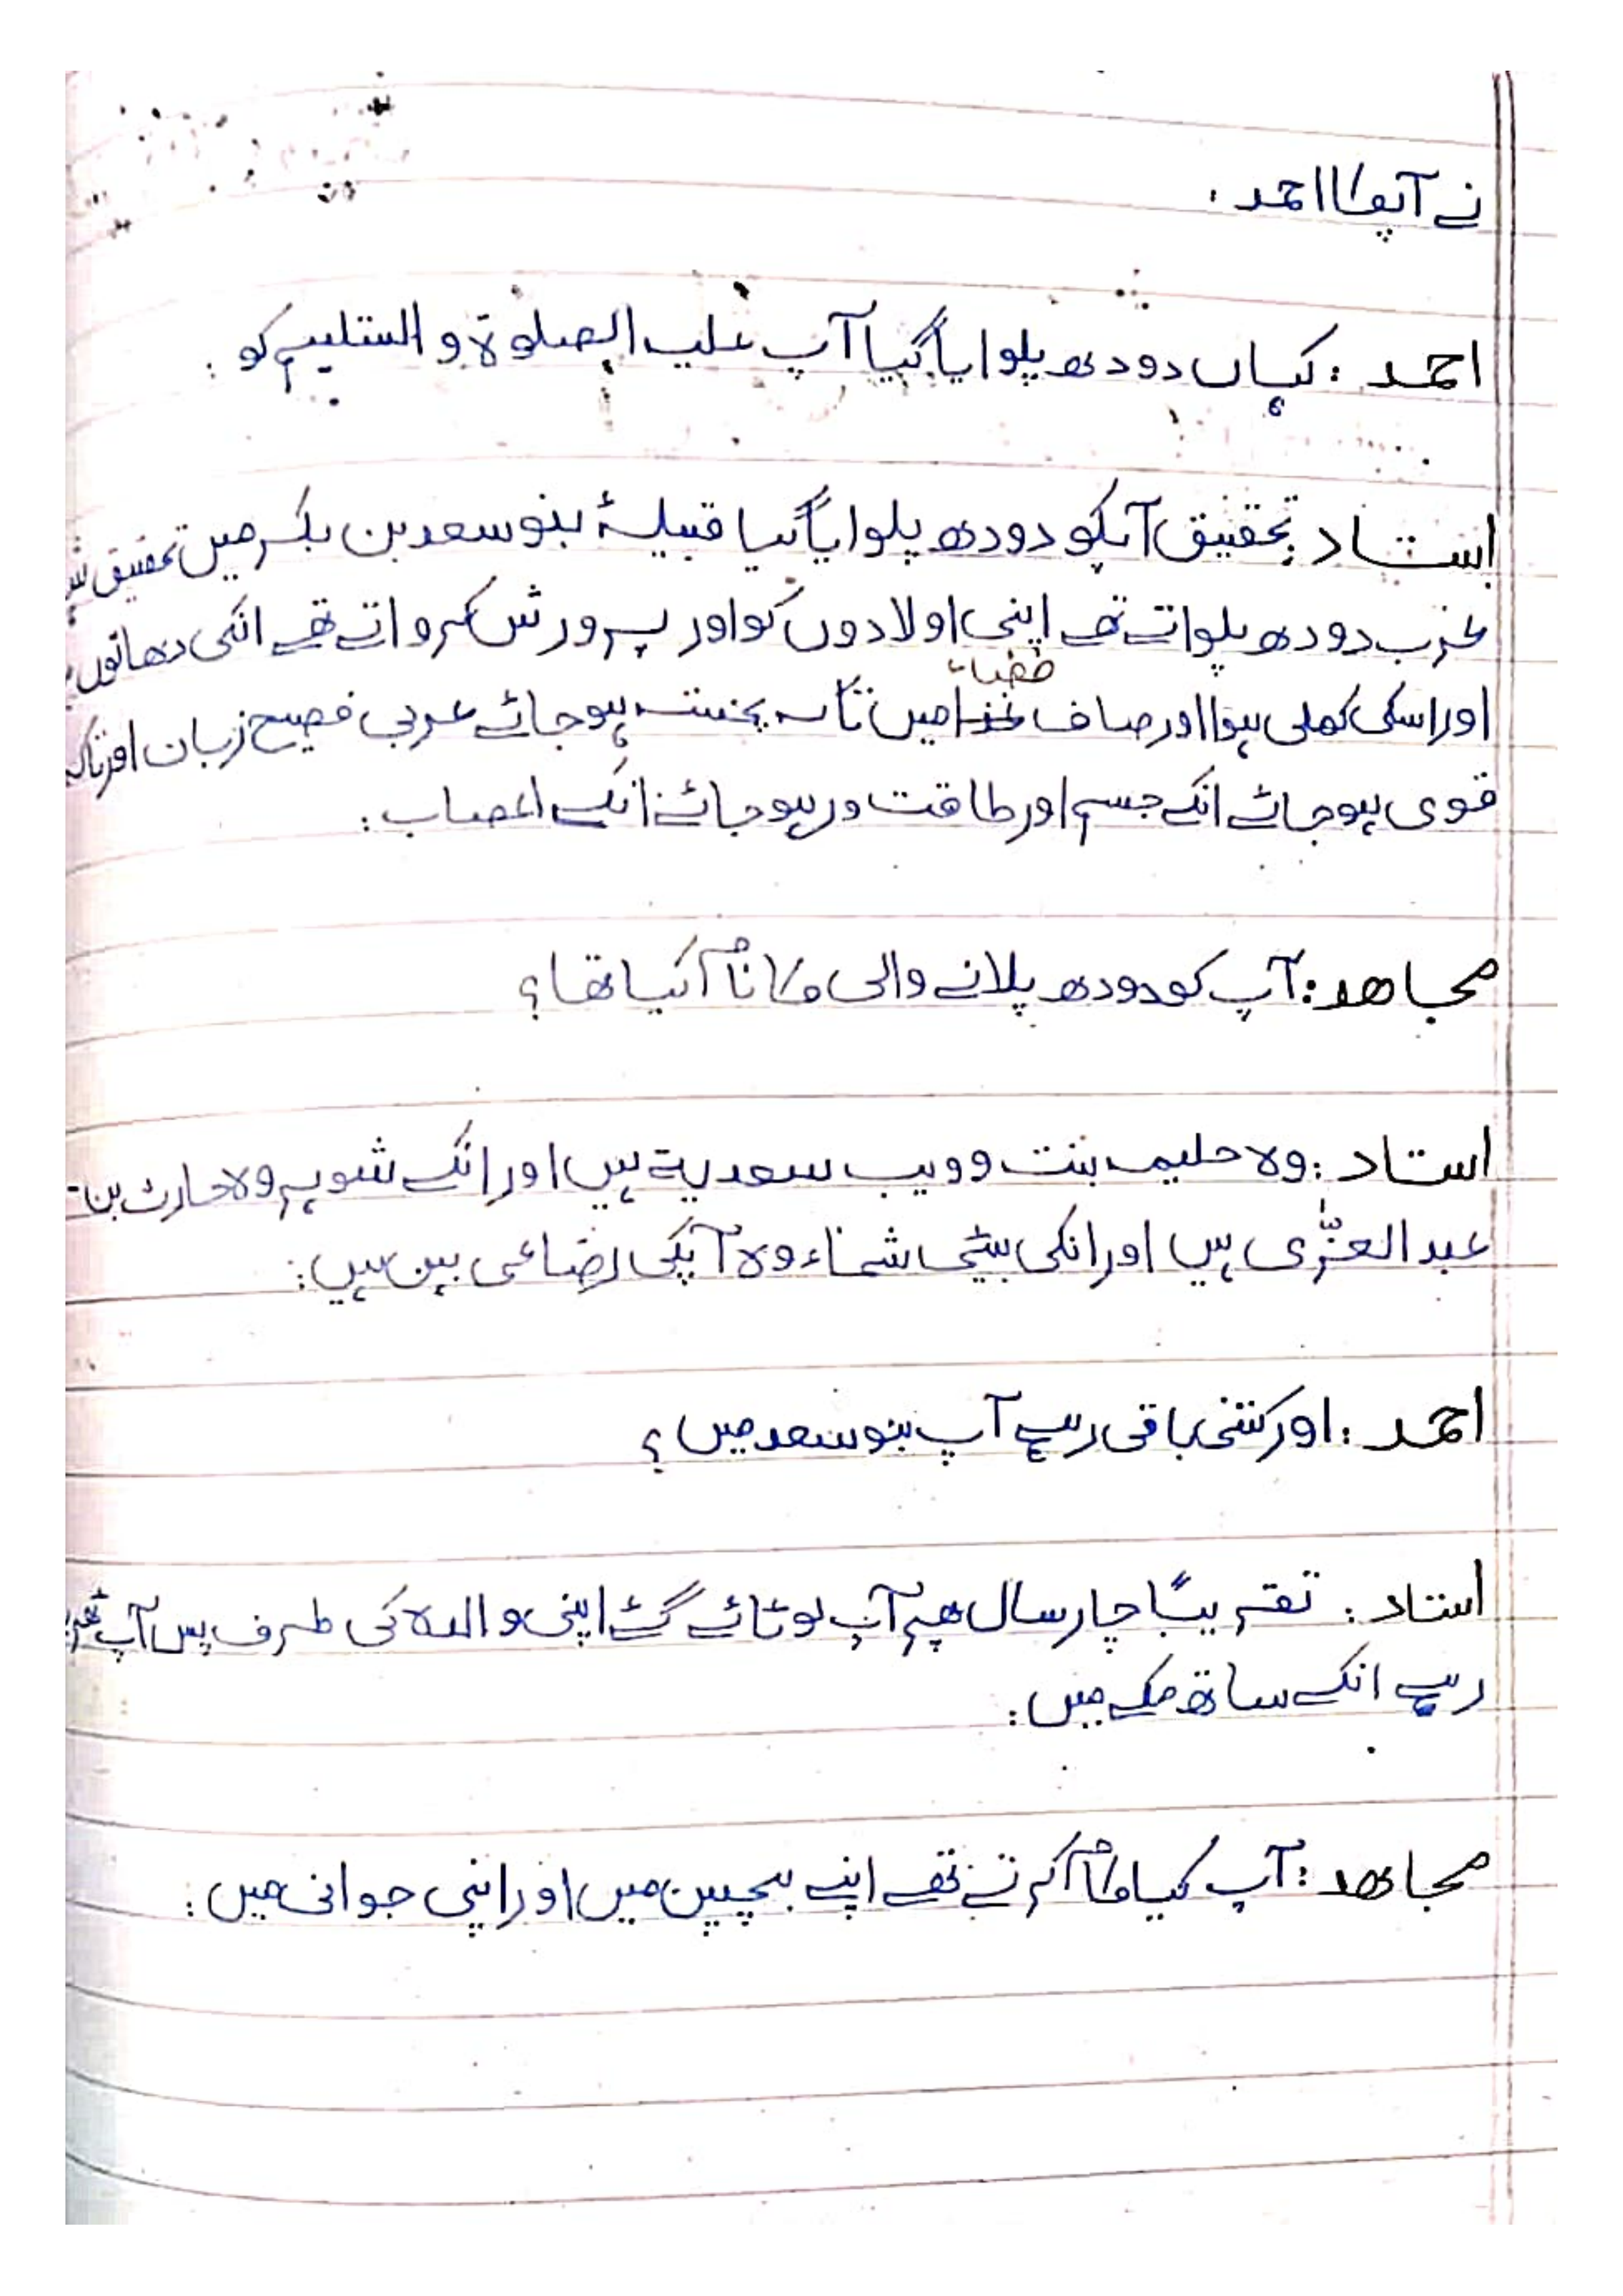 نے آپکا احمد ۔
احمد : کہاں دودھ پلوایا گیا آپ علیہ الصلوۃ و التسلیم کو :
استاد : تحقیق آپکو دودھ پلوایا گیا قبیلۂ بنو سعد بن بکر میں تحقیق
عرب دودھ پلواتے تھے اپنی اولادوں کو اور پرورش کرواتے تھے انکی دھاتوں
فضاء
اور اسکی کھلی ہوا اور صاف میں تاکہ پختہ ہو جائے عربی فصیح زبان اور تاکہ
قوی ہو جائے انکے جسم اور طاقت ور ہو جائے انکے اعصاب :
مجاھد : آپ کو دودھ پلانے والی کا نام کیا تھا ؟
استاد : وہ حلیمہ بنت وویب سعدیۃ ہیں اور انکے شوہر وہ حارث بن
عبد العزّٰی ہیں اور انکی بیٹی شماء وہ آپکی رضاعی بہن ہیں :
احمد : اور کتنی باقی رہے آپ بنو سعد میں ؟
استاد : تقریبًا چار سال پھر آپ لوٹائے گئے اپنی والدہ کی طرف پس آپ
رہے انکے ساتھ مکے میں :
مجاھد : آپ کیا کام کرتے تھے اپنے بچپن میں اور اپنی جوانی میں :